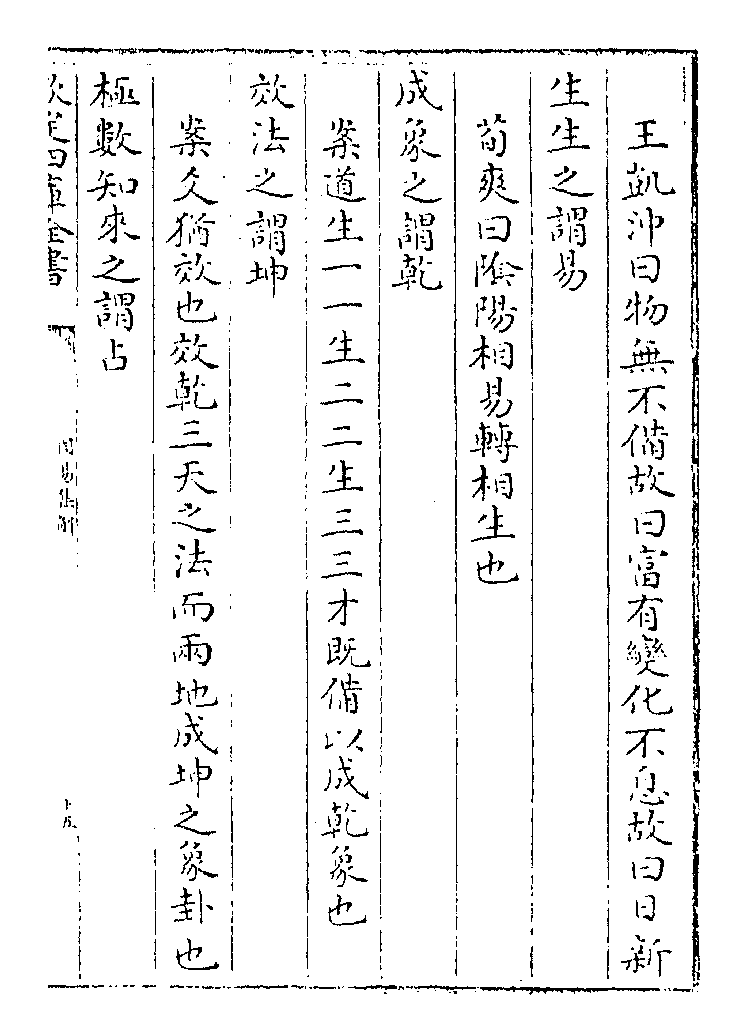 王凱沖曰物無不備故曰富有變化不息故曰日新
生生之謂易
荀爽曰陰陽相易轉相生也
成象之謂乾
案道生一一生二二生三三才既備以成乾象也
效法之謂坤
案爻猶效也效乾三天之法而兩地成坤之象卦也
極數知來之謂占
欽定四庫全書
周易集解
十五